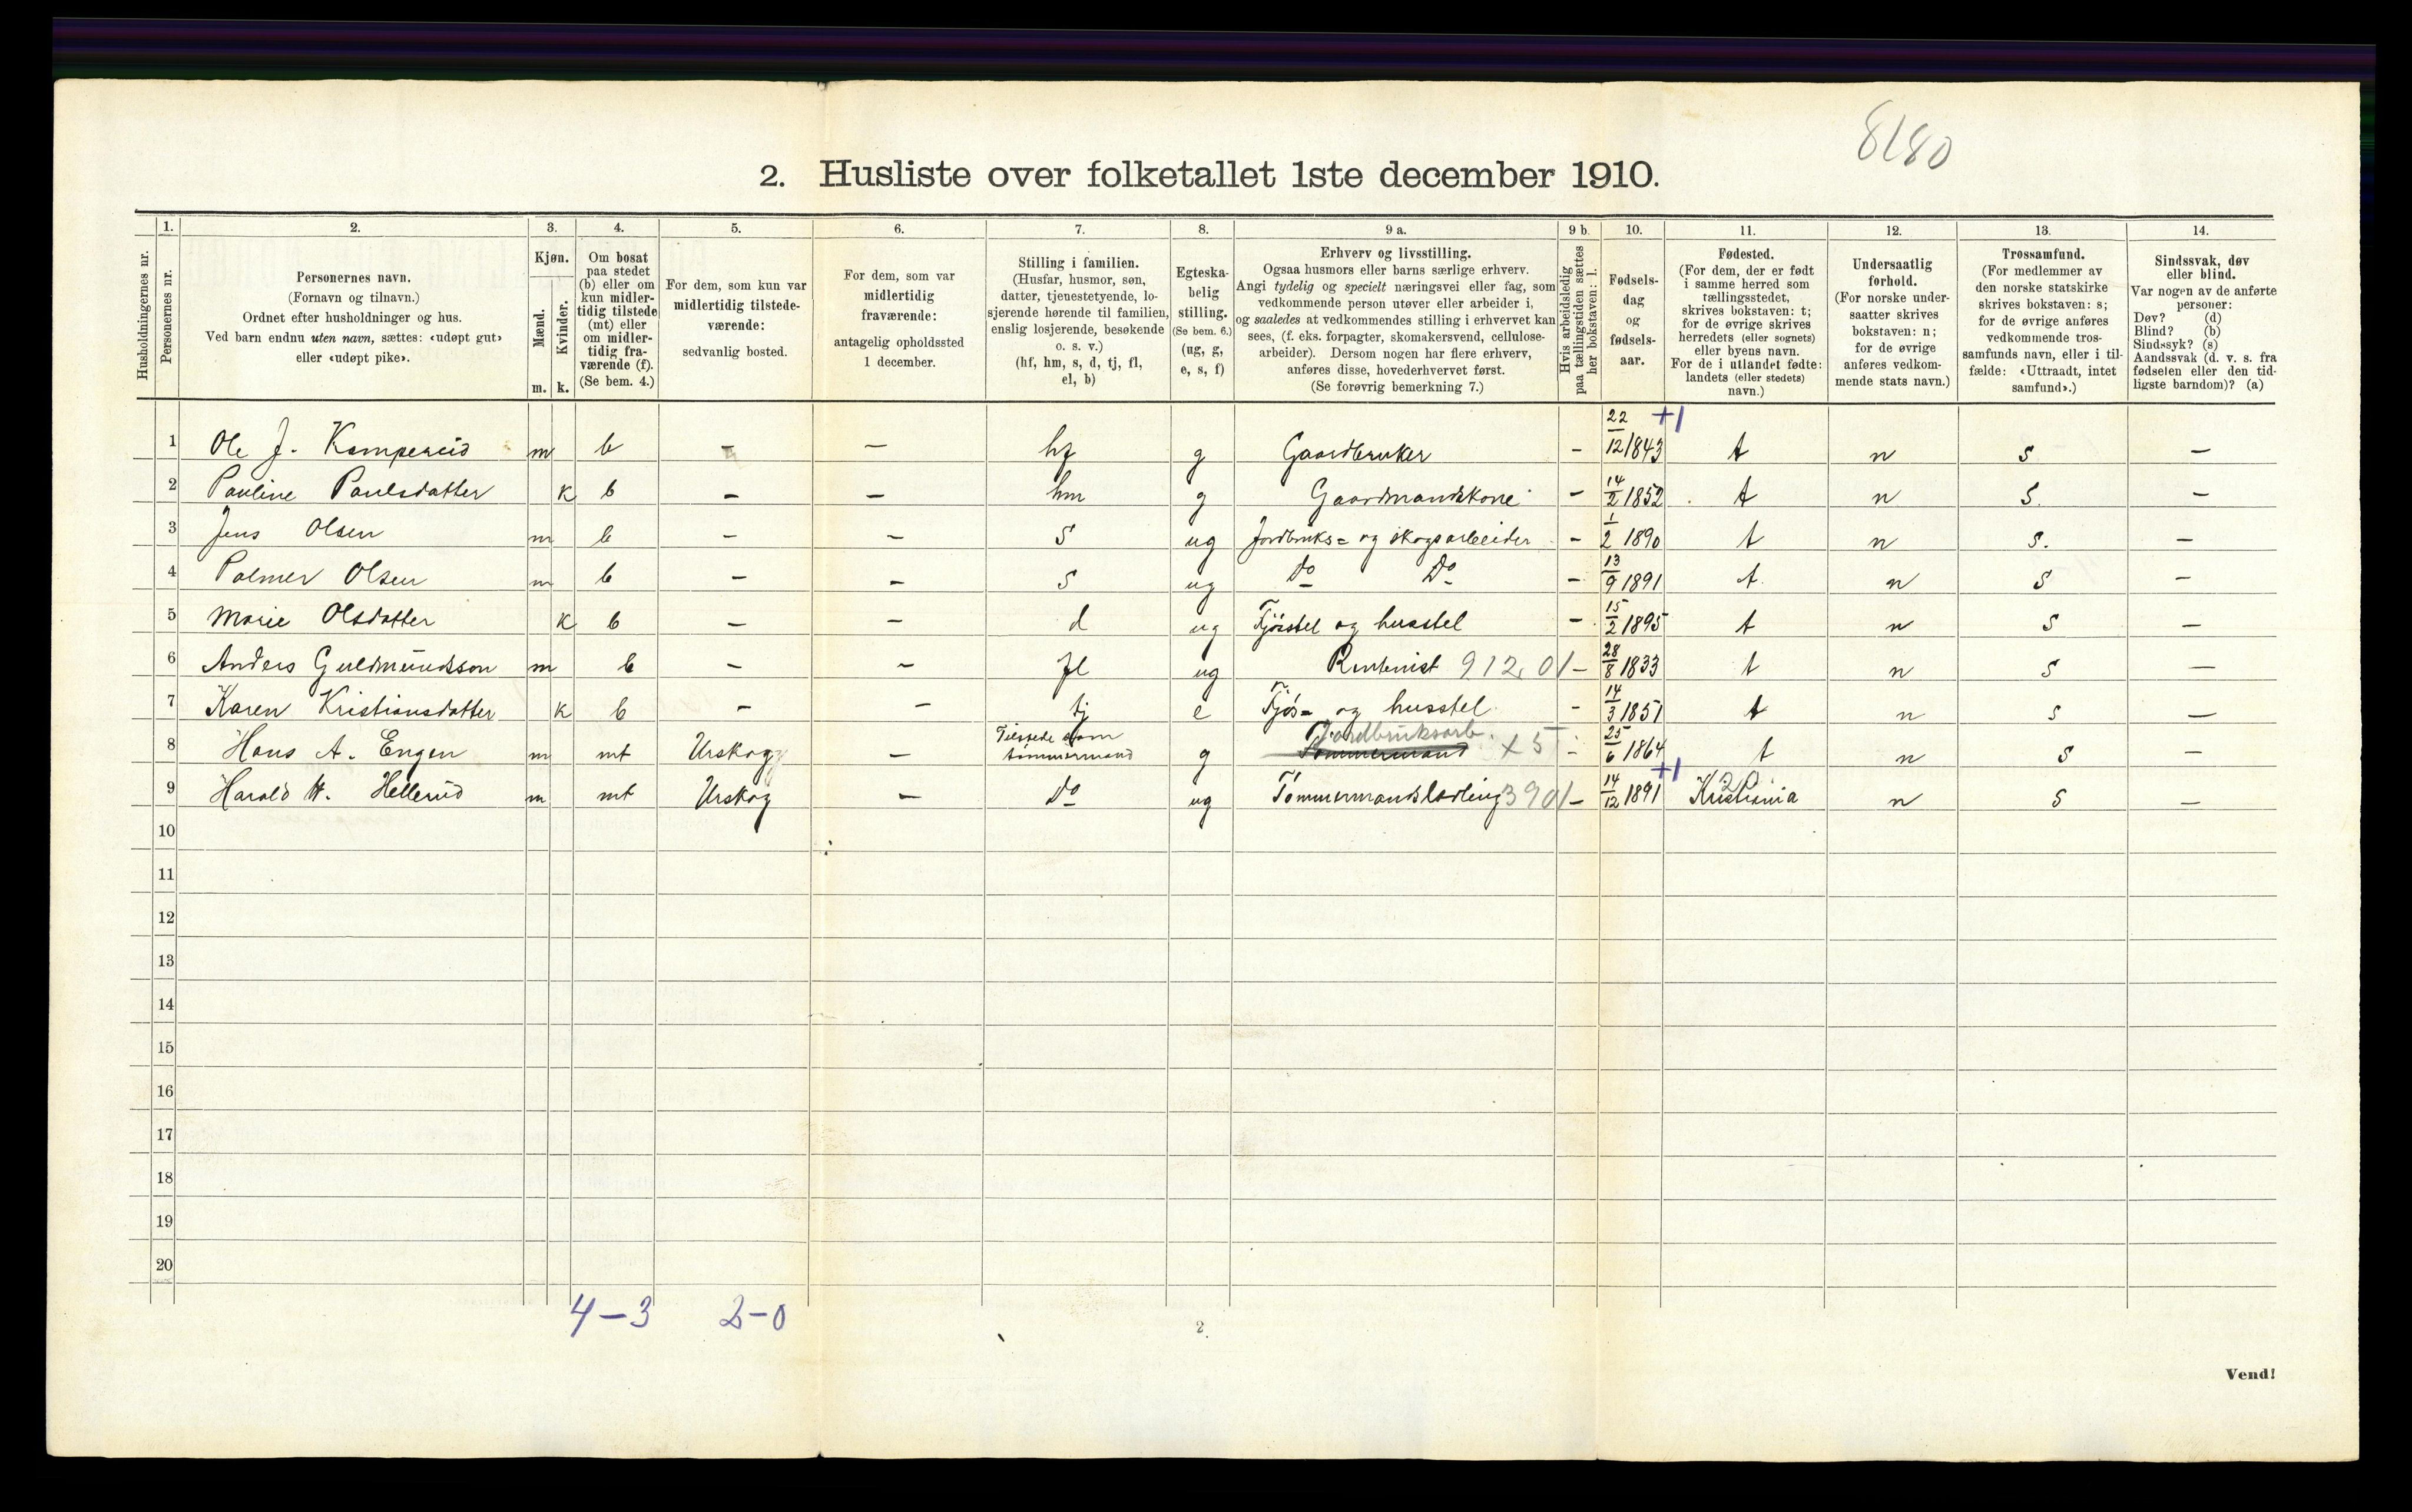 8180
2. Husliste over folketallet 1ste december 1910.
Husholdningernes nr.
1. Personernes nr.
2. Personernes navn.
(Fornavn og tilnavn.)
Ordnet efter husholdninger og hus.
Ved barn endnu uten navn, sættes: «udøpt gut»
eller «udøpt pike».
3. Kjøn.
Mænd. m.
Kvinder. k.
4. Om bosat
paa stedet
(b) eller om
kun midler-
tidig tilstede
(mt) eller
om midler-
tidig fra-
værende (f).
(Se bem. 4.)
5. For dem, som kun var
midlertidig tilstede-
værende:
sedvanlig bosted.
6. For dem, som var
midlertidig
fraværende:
antagelig opholdssted
1 december.
7. Stilling i familien.
(Husfar, husmor, søn,
datter, tjenestetyende, lo-
sjerende hørende til familien,
enslig losjerende, besøkende
o. s. v.)
(hf, hm, s, d, tj, fl,
el, b)
8. Egteska-
belig
stilling.
(Se bem. 6.)
(ug, g,
e, s, f)
9 a. Erhverv og livsstilling.
Ogsaa husmors eller barns særlige erhverv.
Angi tydelig og specielt næringsvei eller fag, som
vedkommende person utøver eller arbeider i,
og saaledes at vedkommendes stilling i erhvervet kan
sees, (f. eks. forpagter, skomakersvend, cellulose-
arbeider). Dersom nogen har flere erhverv,
anføres disse, hovederhvervet først.
(Se forøvrig bemerkning 7.)
9 b. Hvis arbeidsledig
paa tællingstiden sættes
her bokstaven: l.
10. Fødsels-
dag
og
fødsels-
aar.
11. Fødested.
(For dem, der er født
i samme herred som
tællingsstedet,
skrives bokstaven: t;
for de øvrige skrives
herredets (eller sognets)
eller byens navn.
For de i utlandet fødte:
landets (eller stedets)
navn.)
12. Undersaatlig
forhold.
(For norske under-
saatter skrives
bokstaven: n;
for de øvrige
anføres vedkom-
mende stats navn.)
13. Trossamfund.
(For medlemmer av
den norske statskirke
skrives bokstaven: s;
for de øvrige anføres
vedkommende tros-
samfunds navn, eller i til-
fælde: «Uttraadt, intet
samfund».)
14. Sindssvak, døv
eller blind.
Var nogen av de anførte
personer:
Døv? (d)
Blind? (b)
Sindssyk? (s)
Aandssvak (d. v. s. fra
fødselen eller den tid-
ligste barndom)? (a)
1 Ole J. m b - - hf g Gaardbruker - 22/12 1843 +1 t n s -
2 Pauline Paulsdatter k b - - hm g Gaardmandskone - 14/2 1852 t n s. -
3 Jens Olsen m b - - s ug Jordbruks= og skogsarbeider - 1/2 1890 t n s. -
4 Palmer Olsen m b - - s ug Do Do - 13/9 1891 t n s -
5 Marie Olsdatter k b - - d ug Fjösstel og husstel - 15/2 1895 t n s -
6 Anders Guldmundsson m b - - fl ug Rentenist 912,01 - 28/8 1833 t n s -
7 Karen Kristiansdatter k b - - tj e Fjös= og husstel - 14/3 1851 t n s -
8 Hans A. Engen m mt Urskog - Tilstede som tömmermand g Tömmermand Jordbruksarb. x 5 - 25/6 1864 t n s -
9 Harald H. Hellerud m mt Urskog - Do ug Tömmermandslærling 3901 - 14/12 1891 +1 Kristiania n s -
10
11
12
13
14
15
16
17
18
19
20
4-3 2-0
2
Vend!